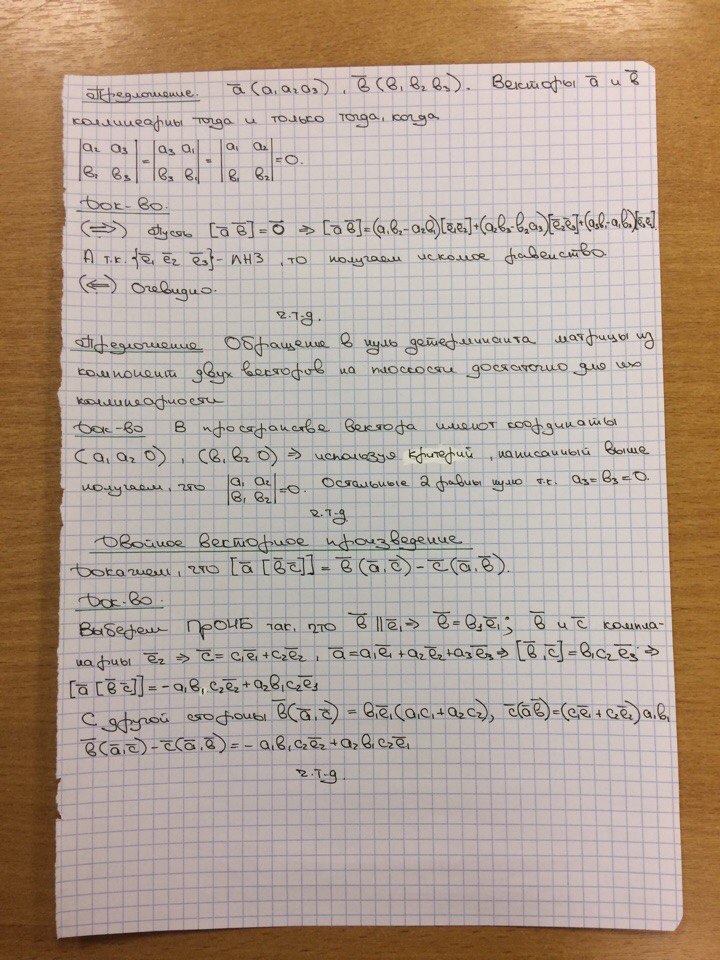 Предложение. ā (a₁ a₂ a₃), b̄ (b₁ b₂ b₃). Векторы ā и b̄
коллинеарны тогда и только тогда, когда
|a₂ a₃; b₂ b₃| = |a₃ a₁; b₃ b₁| = |a₁ a₂; b₁ b₂| = 0.
Док-во.
(⇒) Пусть [ā b̄] = 0̄ ⇒ [ā b̄] = (a₁b₂ - a₂b₁)[ē₁ē₂] + (a₂b₃ - b₂a₃)[ē₂ē₃] + (a₃b₁ - a₁b₃)[ē₃ē₁].
А т.к. {ē₁ ē₂ ē₃} - ЛНЗ, то получаем искомое равенство.
(⇐) Очевидно.
ч.т.д.
Предложение Обращение в нуль детерминанта матрицы из
компонент двух векторов на плоскости достаточно для их
коллинеарности
Док-во В пространстве вектора имеют координаты
(a₁ a₂ 0), (b₁ b₂ 0) ⇒ используя критерий, написанный выше
получаем, что |a₁ a₂; b₁ b₂| = 0. Остальные 2 равны нулю т.к. a₃ = b₃ = 0.
ч.т.д
Двойное векторное произведение
Докажем, что [ā [b̄ c̄]] = b̄ (ā, c̄) - c̄ (ā, b̄).
Док-во.
Выберем ПрОНБ так, что b̄ ∥ ē₁ ⇒ b̄ = b₁ē₁; b̄ и c̄ компла-
нарны ē₂ ⇒ c̄ = c₁ē₁ + c₂ē₂, ā = a₁ē₁ + a₂ē₂ + a₃ē₃ ⇒ [b̄, c̄] = b₁c₂ē₃ ⇒
[ā [b̄ c̄]] = -a₁b₁c₂ē₂ + a₂b₁c₂ē₁
С другой стороны b̄(ā, c̄) = b₁ē₁(a₁c₁ + a₂c₂), c̄(ā b̄) = (c₁ē₁ + c₂ē₂) a₁b₁
b̄(ā, c̄) - c̄(ā, b̄) = -a₁b₁c₂ē₂ + a₂b₁c₂ē₁
ч.т.д.